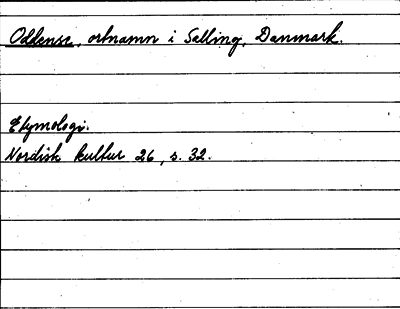 Oddense, ortnamn i Salling, Danmark.
Etymologi.
Nordisk kultur 26, s. 32.